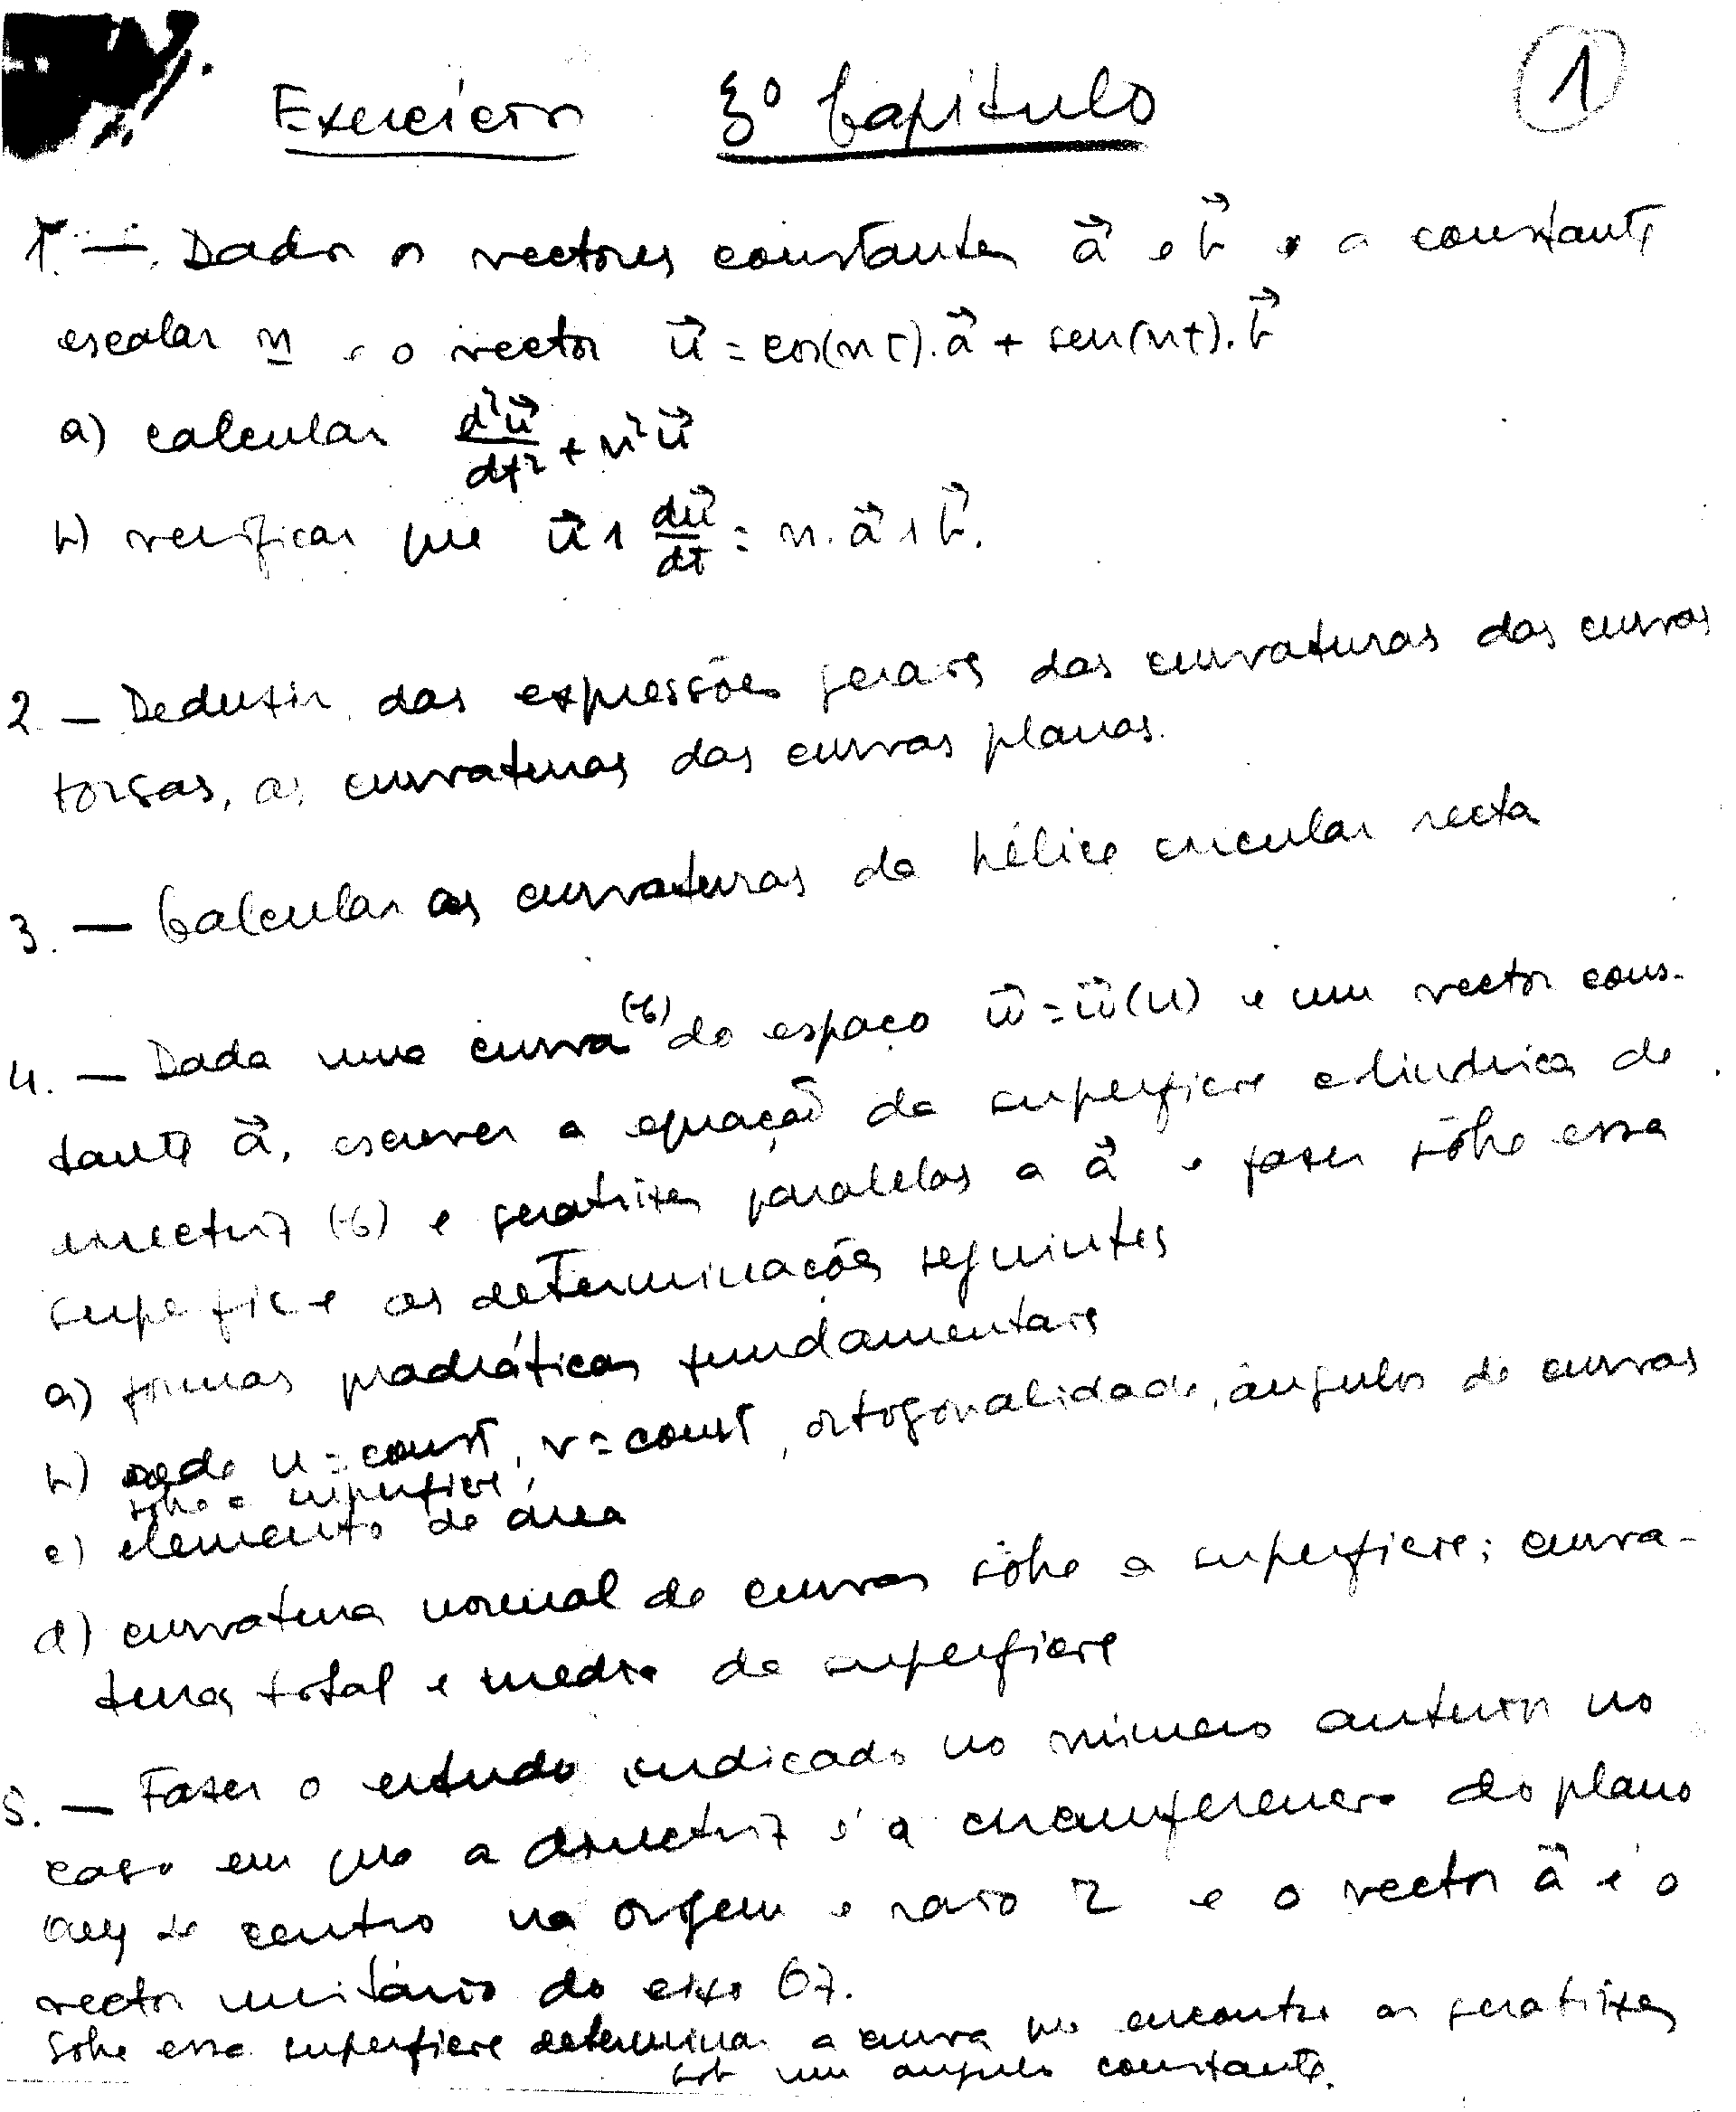 Exercícios 3º Capítulo
1
1. — Dados os vectores constantes a⃗ e b⃗ e a constante
escalar n e o vector u⃗ = cos(nt).a⃗ + sen(nt).b⃗
a) calcular d²u⃗/dt² + n²u⃗
b) verificar que u⃗ ∧ du⃗/dt = n. a⃗ ∧ b⃗.
2 — Deduzir das expressões gerais das curvaturas das curvas
torsas, as curvaturas das curvas planas.
3. — Calcular as curvaturas da hélice circular recta
4. — Dada uma curva (C) do espaço w⃗ = w⃗(u) e um vector cons-
tante a⃗, escrever a equação da superfície cilíndrica de
directriz (C) e geratrizes paralelas a a⃗ e fazer sôbre essa
superfície as determinações seguintes
a) formas quadráticas fundamentais
b) rede u = const, v = const, ortogonalidade, ângulos de curvas
sôbre a superfície,
c) elemento de área
d) curvatura normal de curvas sôbre a superfície; curva-
turas total e media da superfície
5. — Fazer o estudo indicado no número anterior no
caso em que a directriz é a circunferencia do plano
Oxy de centro na origem e raio r e o vector a⃗ é o
vector unitário do eixo Oz.
Sobre essa superfície determinar a curva que encontre as geratrizes
sob um angulo constante.